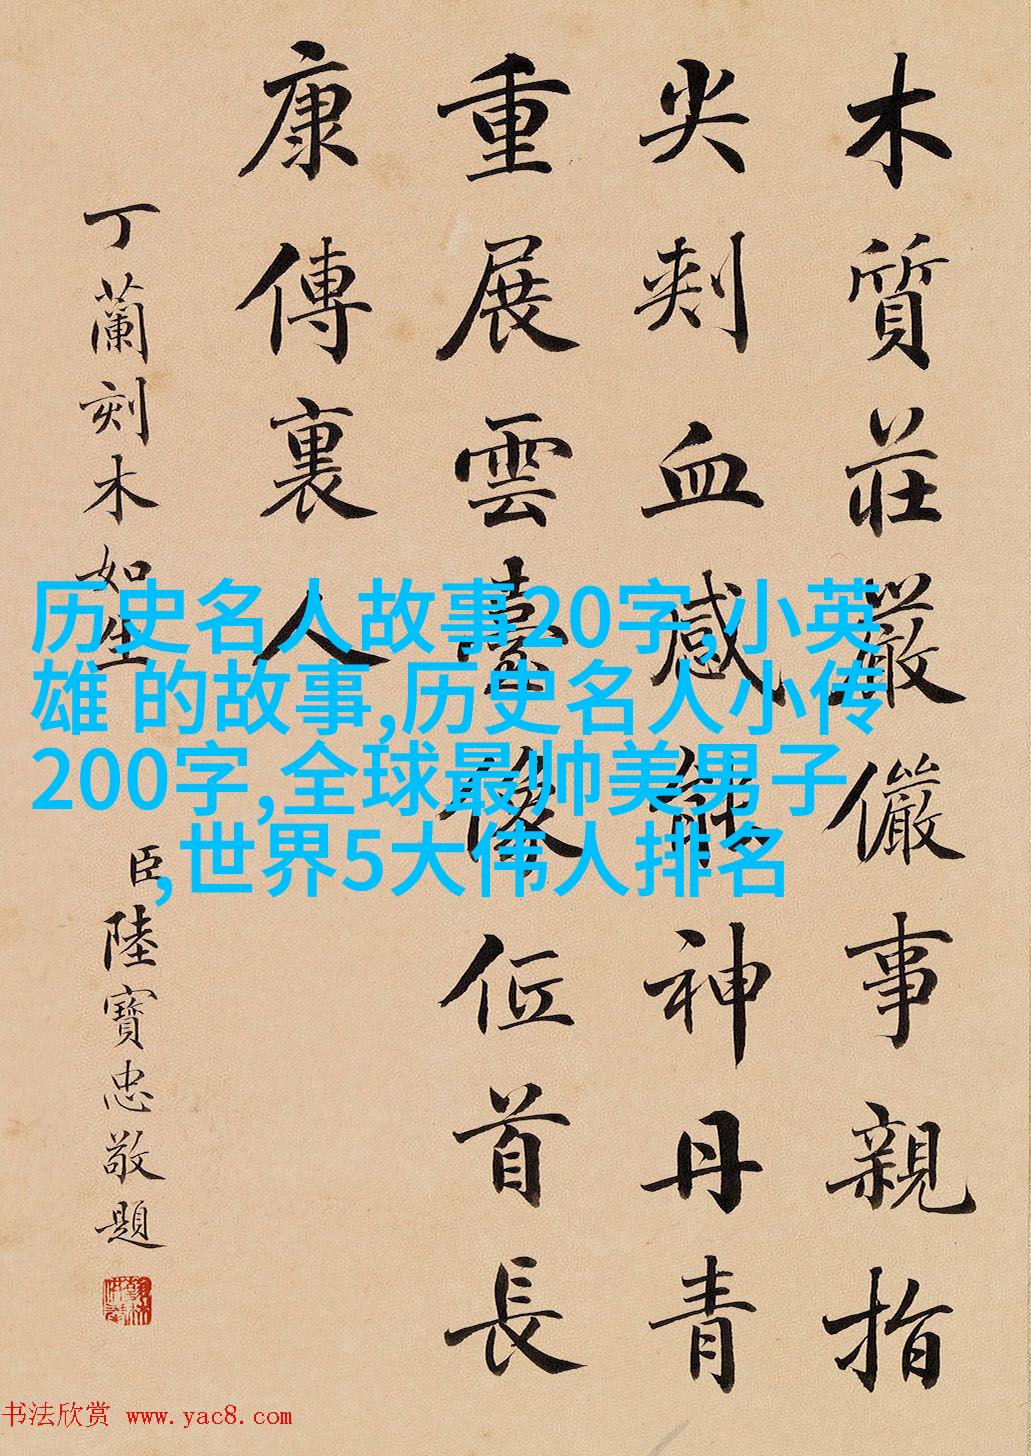 木質莊嚴儼事親指
尖刾血感能神丹青
重展雲臺像位首長
康傳裏人
丁蘭刻木如生
臣陸寶忠敬題
历史名人故事20字,小英
雄 的故事,历史名人小传
200字,全球最帅美男子
,世界5大伟人排名
书法欣赏 www.yac8.com